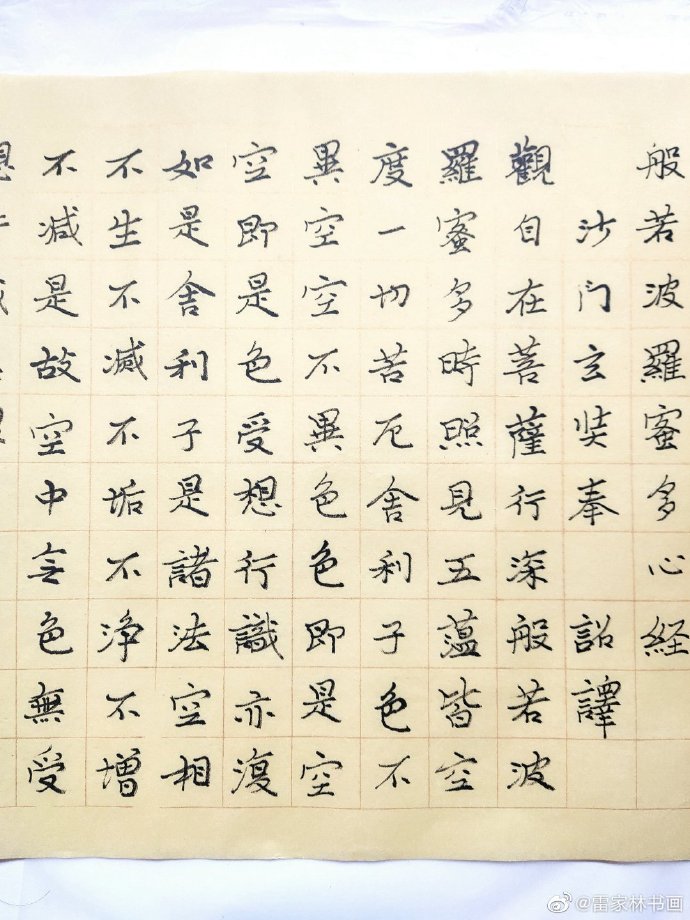 般若波羅蜜多心経
沙門玄奘奉 詔譯
觀自在菩薩行深般若波
羅蜜多時照見五蘊皆空
度一切苦厄舍利子色不
異空空不異色色即是空
空即是色受想行識亦復
如是舍利子是諸法空相
不生不滅不垢不浄不增
不減是故空中无色無受
@雷家林书画